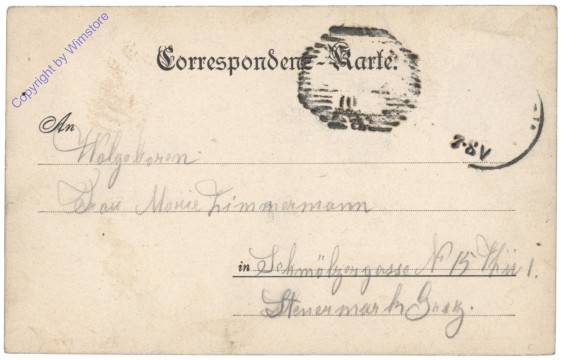 Copyright by Wimstore
Correspondenz-Karte.
10
7-8V
An
Wolgeboren
Frau Marie Zimmermann
in Schmölzergasse N 15 Thü 1.
Steuermark Graz.